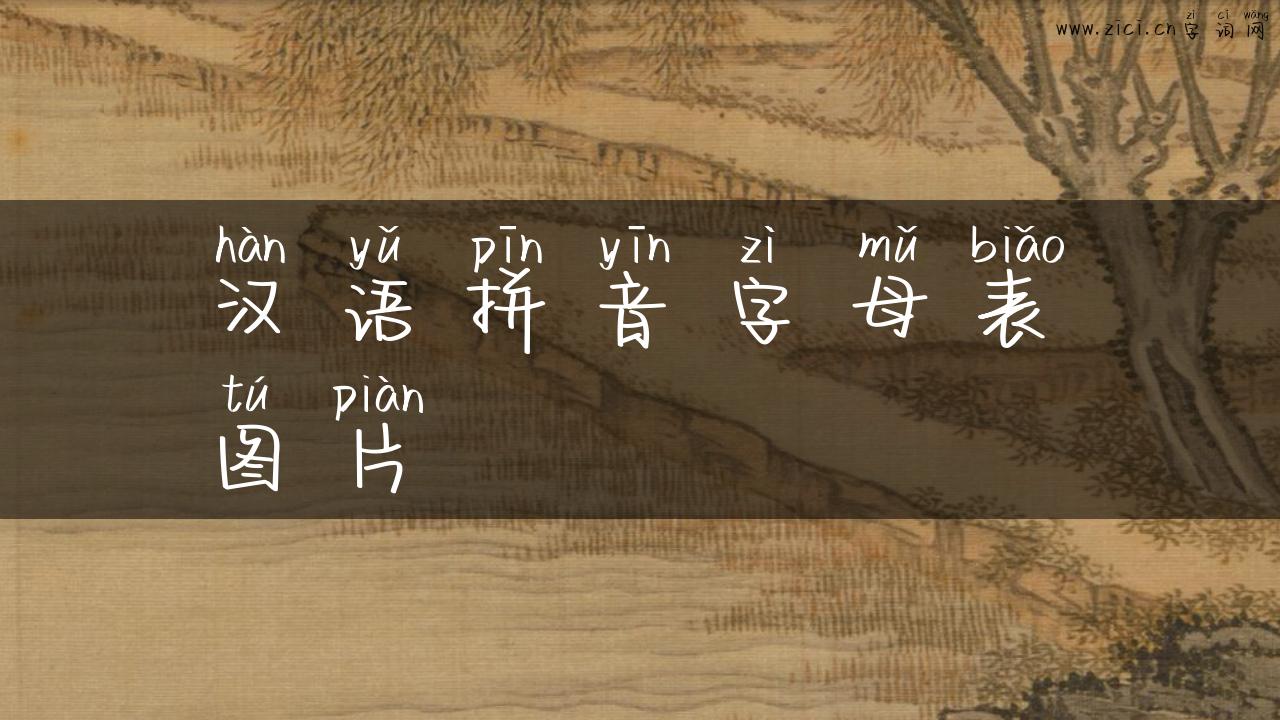 zì cí wǎng
www.zici.cn字词网
hàn yǔ pīn yīn zì mǔ biǎo
汉语拼音字母表
tú piàn
图片